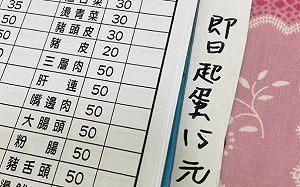 35
燙青菜 30
50 豬頭皮 30
30 豬皮 20
三層肉 50
肝連 50
嘴邊肉 50
大腸頭 50
粉腸 50
豬舌頭 50
即日起蛋15元